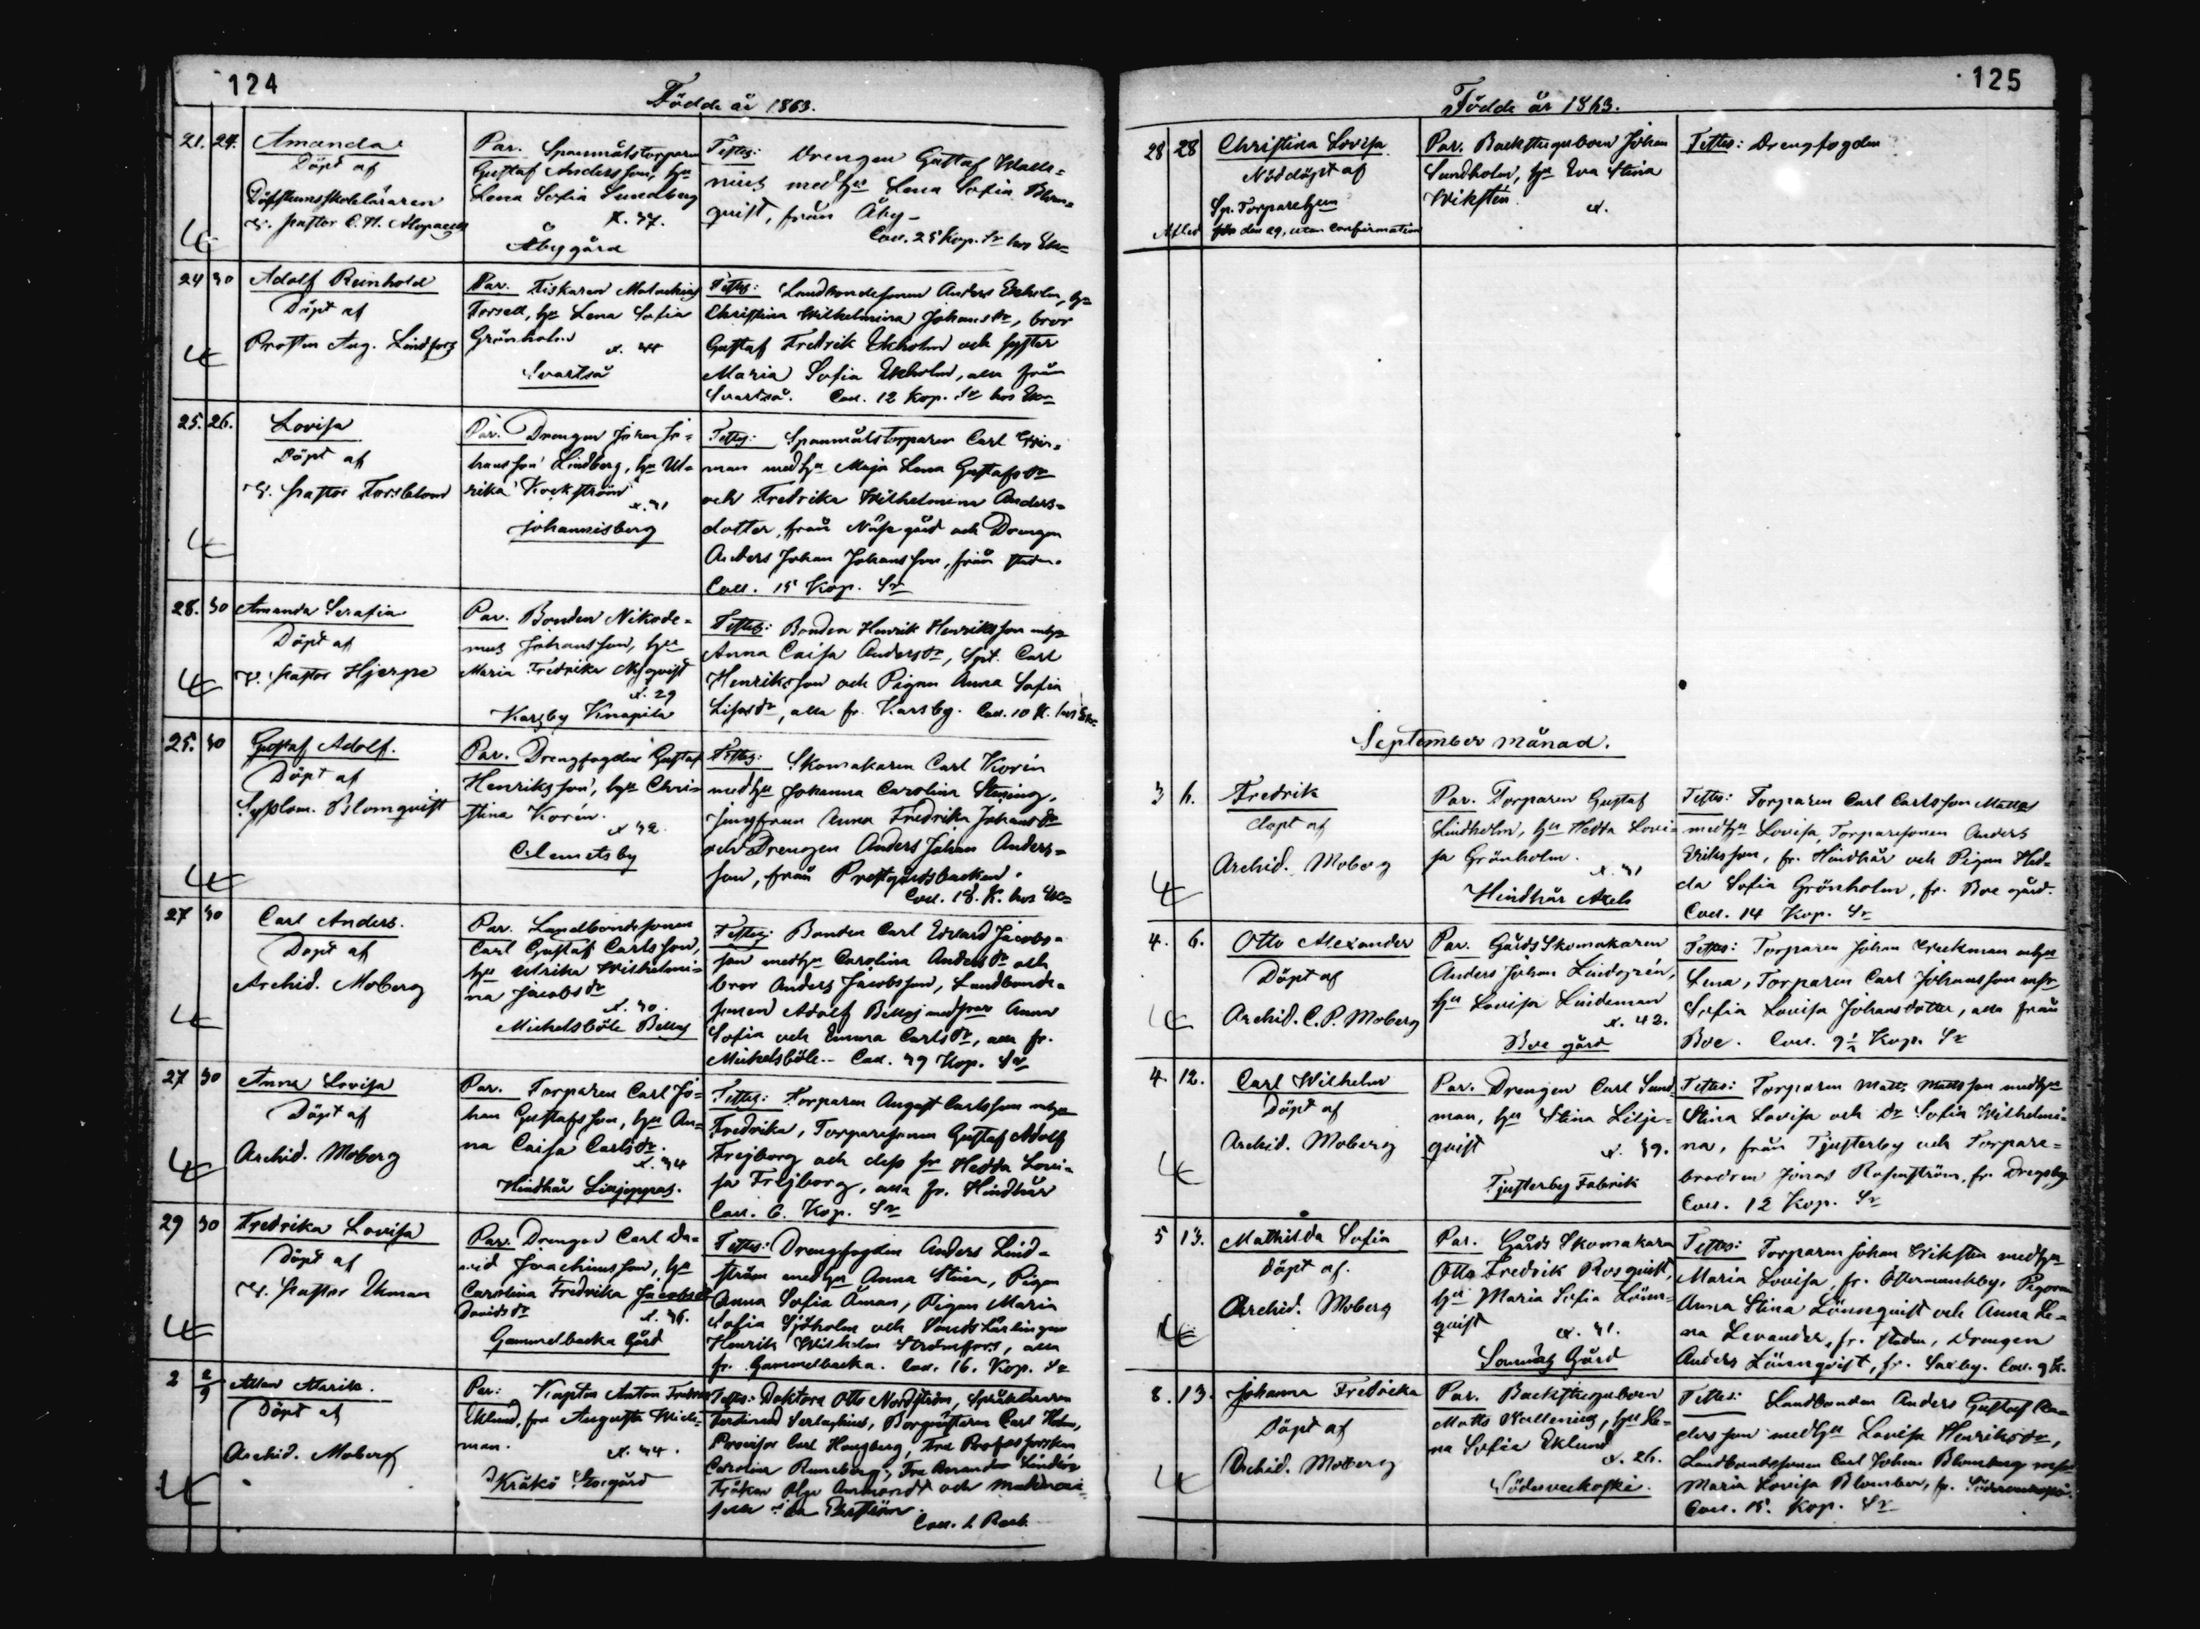 124
Födde år 1863.
21. 24. Amanda
Döpt af
Döfstumskoleläraren
v. pastor C. H. Alopaeus
Par. Spanmålstorparn
Gustaf Andersson, hu
Lena Sofia Sundberg
x. 37.
Åby gård
Testes: Drengen Gustaf Walle-
nius med hu Lena Sofia Blom-
quist, från Åby-
Coll. 25 Kop. Sr hos
24 30 Adolf Reinhold
Döpt af
Prosten Aug. Lindfors
Par. Fiskaren Malachias
Forsell, hu Lena Sofia
Grönholm
Svartså
Testes: Landbondesonen Anders Ekholm, hu
Christina Wilhelmina Johansdr, bror
Gustaf Fredrik Ekholm och syster
Maria Sofia Ekholm, alla från
Svartså. Coll. 12 Kop. Sr hos
25. 26. Lovisa
Döpt af
V. pastor Forsblom
Par. Drengen Johan Jo-
hansson Lindberg, hu Ul-
rika Kockström
x. 31
Johannisberg
Testes: Spanmålstorparen Carl
man med hu Maja Lena Gustafsdr
och Fredrika Wilhelmina Anders-
dotter, från Näse gård och Drengen
Anders Johan Johansson, från staden.
Coll. 15 Kop. Sr
28. 30 Amanda Serafia
Döpt af
V. pastor Hjerpe
Par. Bonden Nikode-
mus Johansson, hu
Maria Fredrika
x. 29
Karsby Knapila
Testes: Bonden Henrik Henriksson m hu
Anna Caisa Andersdr, Carl
Henriksson och Pigan Anna Sofia
alla fr. Karsby. Coll. 10 K. hos
25. 30 Gustaf Adolf.
Döpt af
Sysslom. Blomqvist
Par. Drengfogden Gustaf
Henriksson, hu Chri-
stina Korén.
x 32.
Clemetsby
Testes: Skomakaren Carl Korén
med hu Johanna Carolina Stening,
jungfrun Anna Fredrika Johansdr
och Drengen Anders Johan Anders-
son, från Prestgårdsbacken.
Coll. 18. K. hos
27 30 Carl Anders.
Döpt af
Archid. Moberg
Par. Landbondesonen
Carl Gustaf Carlsson,
hu Ulrika Wilhelmi-
na Jacobsdr
x. 30.
Michelsböle Bellas
Testes: Bonden Carl Edvard Jacobs-
son med hu Carolina Andersdr och
bror Anders Jacobsson, Landbonde-
sonen Adolf Bellas med Anna
Sofia och Emma Carlsdr, alla fr.
Michelsböle.- Coll. 39 Kop. Sr
27 30 Anna Lovisa
Döpt af
Archid. Moberg
Par. Torparen Carl Jo-
han Gustafsson, hu An-
na Caisa Carlsdr.
x. 34
Hindhår Liljeppas.
Testes: Torparen August Carlsson m hu
Fredrika, Torparesonen Gustaf Adolf
Frejborg och dess sr Hedda Lovi-
sa Frejborg, alla fr. Hindhår
Coll. 6. Kop. Sr
29 30 Fredrika Lovisa
Döpt af
V. pastor Ekman
Par. Drengen Carl Da-
vid Joachimsson, hu
Carolina Fredrika Jacobsdr
Davidsdr
x. 36.
Gammelbacka Gård
Testes: Drengfogden Anders Lind-
ström med hu Anna Stina, Pigan
Anna Sofia Åman, Pigan Maria
Sofia Sjöholm och
Henrik Wilhelm Strömfors, alla
fr. Gammelbacka. Coll. 16. Kop. Sr
2 2/9 Allan Alarik.
Döpt af
Archid. Moberg
Par: Kapten Anton Fredrik
Eklund, fru Augusta Wick-
man.
x. 34.
Kråkö Gård
Testes: Doktorn Otto Nordström, Språkläraren
Ferdinand Serlachius, Borgmästaren Carl Holm,
Provisor Carl Hougberg, Fru Professorskan
Carolina Runeberg, Fru Amanda
Fröken
Coll. 1 Rub.
125
Födde år 1863.
28 28 Christina Lovisa
Nöddöpt af
Sp. Torparehun
Afled den 29, utan Confirmation
Par. Backstuguboen Johan
Sundholm, hu Eva Stina
Wikstén.
x.
Testes: Drengfogden
September månad.
3 6. Fredrik
döpt af
Archid. Moberg
Par. Torparen Gustaf
Lindholm, hu Hedda Lovi-
sa Grönholm.
x. 31
Hindhår Axels
Testes: Torparen Carl Carlsson
med hu Lovisa, Torparesonen Anders
Eriksson, fr. Hindhår och Pigan Hed-
da Sofia Grönholm, fr. Boe gård.
Coll. 14 Kop. Sr
4. 6. Otto Alexander
Döpt af
Archid. C. P. Moberg
Par. Gårds Skomakaren
Anders Johan Lindgrén,
hu Lovisa Lindeman
x. 42.
Boe gård
Testes: Torparen Johan m hu
Lena, Torparen Carl Johansson
Sofia Lovisa Johansdotter, alla från
Boe. Coll. 9½ Kop. Sr
4. 12. Carl Wilhelm
Döpt af
Archid. Moberg
Par. Drengen Carl Sund-
man, hu Stina Lilje-
quist
x. 39.
Tjusterby Fabrik
Testes: Torparen Matts Mattsson med hu
Stina Lovisa och dr Sofia Wilhelmi-
na, från Tjusterby och Torpare-
brodren Jonas Rosenström, fr. Dregsby
Coll. 12 Kop. Sr
5 13. Mathilda Sofia
döpt af.
Archid. Moberg
Par. Gårds Skomakaren
Otto Fredrik Rosquist,
hu Maria Sofia Lönn-
quist
x. 31.
Sannäs Gård
Testes: Torparen Johan Wikstén med hu
Maria Lovisa, fr. Pigorna
Anna Stina Lönnquist och Anna Le-
na Levander, fr. staden, Drengen
Anders Lönnqvist, fr. Saxby. Coll. 9 K.
8. 13. Johanna Fredrika
Döpt af
Archid. Moberg
Par. Backstuguboen
Matts Wallenius, hu Le-
na Sofia Eklund
x. 26.
Söderveckoski.
Testes: Landbonden Anders Gustaf An-
dersson med hu Lovisa Henriksdr,
Landbondesonen Carl Johan Blomberg
Maria Lovisa
Coll. 15. Kop. Sr